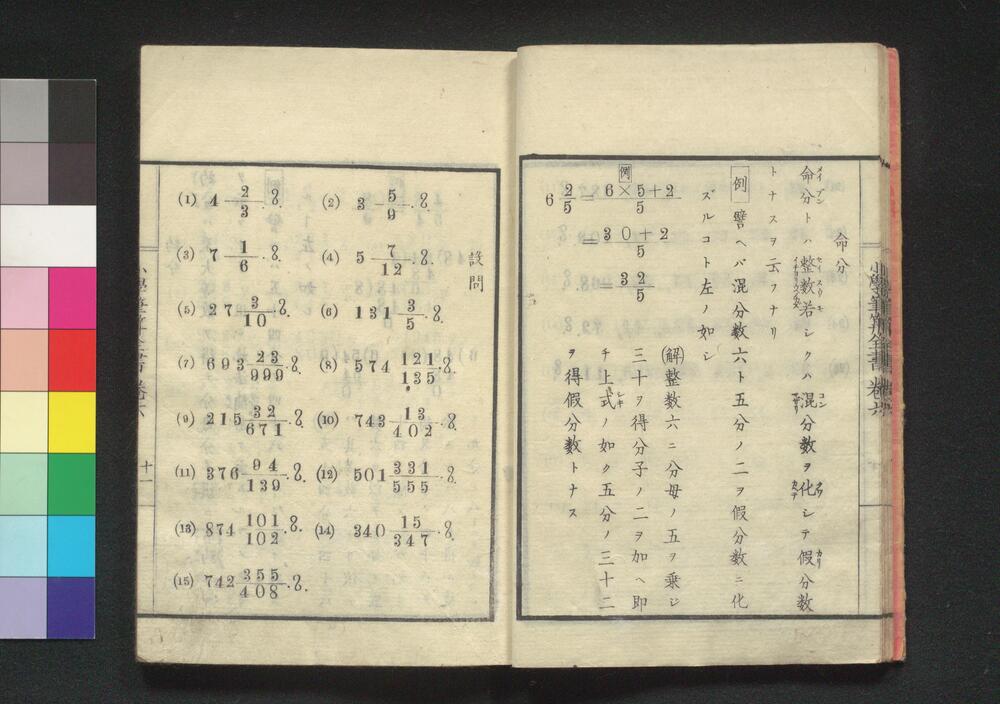 命分
命分トハ整数若シクハ混分数ヲ化シテ假分数
トナスヲ云フナリ
例 譬ヘバ混分数六ト五分ノ二ヲ假分数ニ化
ズルコト左ノ如シ
例
6 2/5 = 6×5+2/5
= 30+2/5
= 32/5
(解)整数六ニ分母ノ五ヲ乗シ
三十ヲ得分子ノ二ヲ加ヘ即
チ上式ノ如ク五分ノ三十二
ヲ得假分数トナス
設問
(1) 4 2/3.
(2) 3 5/9.
(3) 7 1/6.
(4) 5 7/12.
(5) 27 3/10.
(6) 131 3/5.
(7) 693 23/999.
(8) 574 121/135.
(9) 215 32/671.
(10) 743 13/402.
(11) 376 94/139.
(12) 501 331/555.
(13) 874 101/102.
(14) 340 15/347.
(15) 742 355/408.
十一